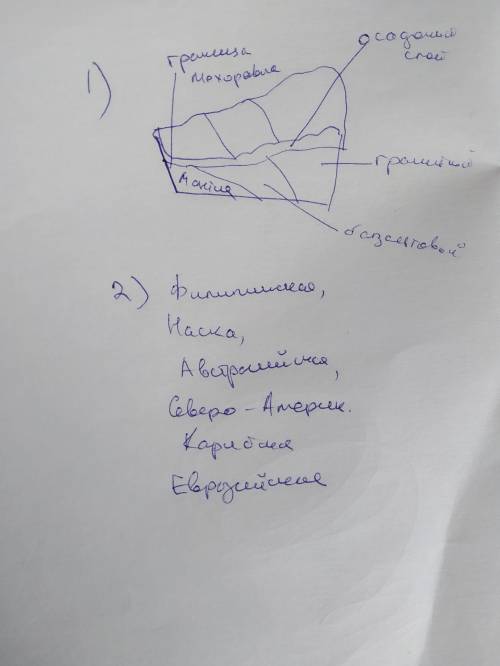 1)
граница
Мохоровла
осадочный
слой
гранитной
Мантия
базальтовой
2) Филиппинская,
Наска,
Австралийская,
Северо-Америк.
Карибская
Евразийская